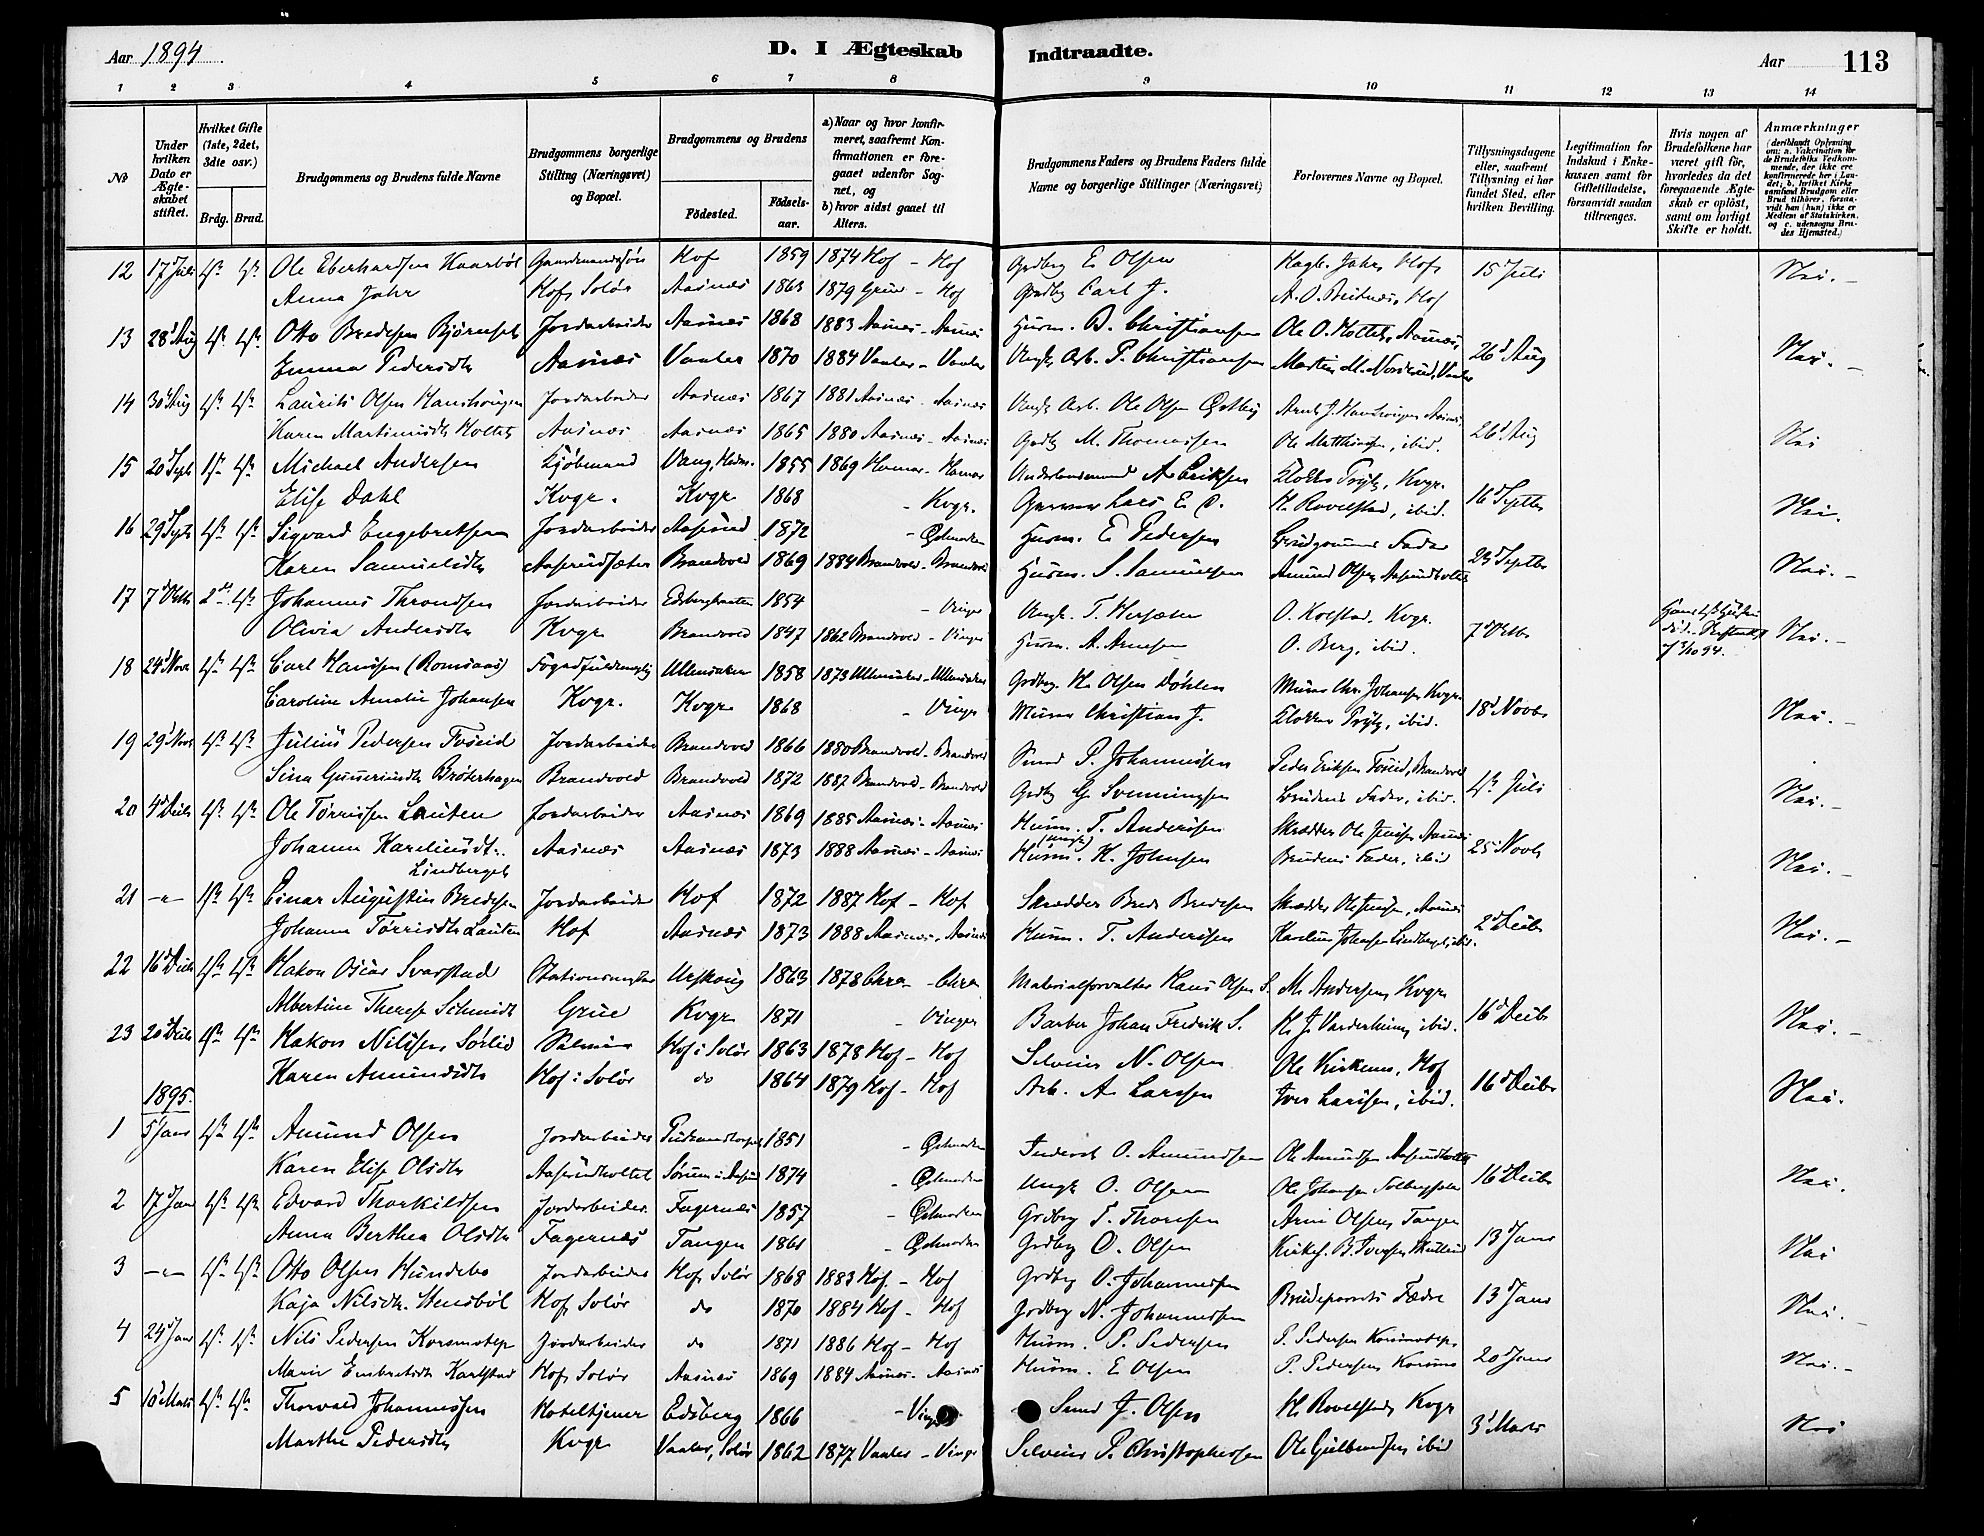 Aar 1894
D. I Ægteskab Indtraadte.
Aar
113
1 2 3 4 5 6 7 8 9 10 11 12 13 14
No
Under hvilken Dato er Ægteskabet stiftet.
Hvilket Gifte (1ste, 2det, 3dte osv.)
Brdg. Brud.
Brudgommens og Brudens fulde Navne
Brudgommens borgerlige Stilling (Næringsvei) og Bopæl.
Brudgommens og Brudens
Fødested.
Fødselsaar.
a) Naar og hvor konfirmeret, saafremt Konfirmationen er foregaaet udenfor Sognet, og
b) hvor sidst gaaet til Alters.
Brudgommens Faders og Brudens Faders fulde Navne og borgerlige Stillinger (Næringsvei)
Forlovernes Navne og Bopæl.
Tillysningsdagene eller, saafremt Tillysning ei har fundet Sted, efter hvilken Bevilling.
Legitimation for Indskud i Enkekassen samt for Giftetilladelse, forsaavidt saadan tiltrænges.
Hvis nogen af Brudefolkene har været gift før, hvorledes da det foregaaende Ægteskab er opløst, samt om lovligt Skifte er holdt.
Anmærkninger (deriblandt Oplysning om: a. Vakcination for de Brudefolks Vedkommende, der ikke ere konfirmerede her i Landet; b. hvilket Kirkesamfund Brudgom eller Brud tilhører, forsaavidt han (hun) ikke er Medlem af Statskirken, og c. udensogns Brudes Hjemsted.)
12 17 Juli 1ste 1ste Ole Eberhardsen Kaarbøl Gaardmandssøn Hof 1859 1874 Hof - Hof Grdbrg E. Olsen Hagb. Jahr, Hof 15 Juli Nei. -
Anna Jahr Hof, Solør Aasnæs 1863 1879 Grue - Hof Grdbrg Carl J. Hof
13 28 Aug 1ste 1ste Otto Bredesen Bjørneseth Jordarbeider Aasnæs 1868 1883 Aasnæs - Aasnæs Husm. B. Christiansen Ole O. Holtet, Aasnæs, 26 Aug Nei. -
Emma Pedersdtr Aasnæs Vaaler 1870 1884 Vaaler - Vaaler Ungk. Arb. P. Christiansen Martin M. Norderud, Vaaler
14 30 Aug 1ste 1ste Laurits Olsen Hanshougen Jordarbeider Aasnæs 1867 1881 Aasnæs - Aasnæs Ungk Arb. Ole Olsen Østby Arnt J. Hanshougen Aasnæs 26 Aug Nei
Karen Martinusdtr Holtet Aasnæs Aasnæs 1865 1880 Aasnæs - Aasnæs Grdbr M. Thomassen Ole Matthisen, ibid.
15 20 Sept 1ste 1ste Michael Andersen Kjøbmand Vang, Hedm. 1855 1869 Hamar - Hamar A. Eriksen Klokker Prytz, Kvgr. 16 Septbr Nei.
Elise Dahl Kvgr. Kvgr 1868 - Kvgr. Garver Lars E. D. H. Rovelstad, ibid.
16 29 Septb 1ste 1ste Sigvard Engebretsen Jordarbeider Aaserud 1872 - Østmarken Husm. E. Pedersen Brudgommens Fader 23 Septbr Nei. -
Karen Samuelsdtr Aaserudsæter Brandvold 1869 1884 Brandvold - Brandvold Husm. S. Samuelsen Amund Olsen Aaserudholtet
17 7 Oktb 2det 1ste Johannes Throndsen Jordarbeider 1854 - Vinger Ungk. T. O. Kolstad, Kvgr. 7 Oktbr Nei. -
Olivia Andersdtr Kvgr Brandvold 1847 1862 Brandvold - Vinger Husm. A. Arnesen O. Berg, ibid.
18 24 Novr 1ste 1ste Carl Hanssen (Romsaas) Fogedfuldmægtig Ullensaker 1858 1873 Ullensaker - Ullensaker Grdbrg. H. Olsen Døhlen Murer Chr. Johansen, Kvgr. 18 Novbr Nei. -
Caroline Amalie Johansen Kvgr. Kvgr. 1868 - Vinger Murer Christian J. Klokker Prytz, ibid.
19 29 Novr 1ste 1ste Julius Pedersen Foseid Jordarbeider Brandvold 1866 1880 Brandvold - Brandvold Smed P. Johannessen Peder Eriksen Foseid, Brandvold 1ste Juli Nei. -
Sina Brøterhagen Brandvold Brandvold 1872 1887 Brandvold - Brandvold Grdbg G. Svenningsen Brudens Fader, ibid.
20 4 Decbr 1ste 1ste Ole Tørrissen Lauten Jordarbeider Aasnæs 1869 1885 Aasnæs - Aasnæs Husm. T. Andersen Skrædder Ole Jensen Aasnæs 25 Novbr Nei. -
Johanne Karelinsdtr. Lindberget Aasnæs Aasnæs 1873 1888 Aasnæs - Aasnæs Husm. (Ungk) K. Johnsen Brudens Fader, ibid
21 -"- 1ste 1ste Einar Augustin Bredesen Jordarbeider Hof 1872 1887 Hof - Hof Skrædder Brede Bredesen Skrædder Ole Jensen, Aasnæs 2 Decbr Nei. -
Johanne Tørrisdtr Lauten Hof Aasnæs 1873 1888 Aasnæs - Aasnæs Husm. T. Andersen Karelius Johnsen Lindberget, ibid.
22 16 Decbr 1ste 1ste Hakon Oscar Svarstad Stationsmester Urskoug 1863 1878 Chra - Chra Materialforvalter Hans Olsen S. M. Andersen, Kvgr 16 Decbr Nei. -
Albertine Therese Schmidt Grue Kvgr 1871 - Vinger Barber Johan Fredrik S. H. J. ibid.
23 20 Decbr 1ste 1ste Hakon Nilssen Sørlie Hof i Solør 1863 1878 Hof - Hof Selveier N. Olsen Ole Kirkem, Hof 16 Decbr Nei.
Karen Amundsdtr Hof i Solør do 1864 1879 Hof - Hof Arb. A. Larsen Iver Larsen, ibid.
1895.
1 5 Janr 1ste 1ste Amund Olsen Jordarbeider 1851 - Østmarken Inderst O. Amundsen Ole Amundsen Aaserudholtet 16 Decbr Nei.
Karen Elise Olsdtr Aaserudholtet 1874 - Østmarken Ungk O. Olsen Ole Johansen
2 17 Jan 1ste 1ste Edvard Thorkildsen Jordarbeider Fagernæs 1857 - Østmarken Grdbrg T. Thoresen Arne Olsen, Tangen 13 Janr Nei
Anna Berthea Olsdtr Fagernæs Tangen 1861 - Østmarken Grdbrg O. Olsen Kirkes. B. Iversen
3 -"- 1ste 1ste Otto Olsen Hundebo Jordarbeider Hof, Solør 1868 1883 Hof - Hof Grdbrg O. Johannessen Brudeparrets Fædre 13 Janr Nei. -
Kaja Nilsdtr. Hof, Solør do 1870 1884 Hof - Hof Grdbrg N. Johannessen
4 24 Janr 1ste 1ste Nils Pedersen Korsmotep Jordarbeider do 1871 1886 Hof - Hof Husm. P. Pedersen P. Pedersen Korsmotep. 20 Janr Nei. -
Marie Embretsdtr Karlstad Hof, Solør Aasnæs 1869 1884 Aasnæs - Aasnæs Husm. E. Olsen P. Pedersen Korsmo
5 10 Marts 1ste 1ste Thorvald Johannessen Hoteltjener Eidsberg 1866 - Vinger Smed J. Olsen H. Rovelstad, Kvgr 3 Marts Nei
Marthe Pedersdtr Kvgr Vaaler, Solør 1862 1877 Vaaler - Vinger Selveier P. Christophersen Ole Gulbrandsen, ibid